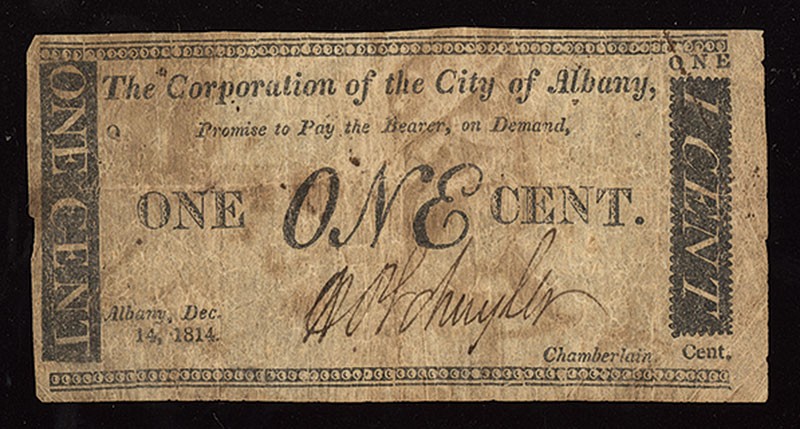 ONE CENT
The Corporation of the City of Albany,
Promise to Pay the Bearer, on Demand,
ONE ONE CENT.
Albany, Dec.
14, 1814.
Schuyler
Chamberlain.
ONE
1 CENT
Cent.